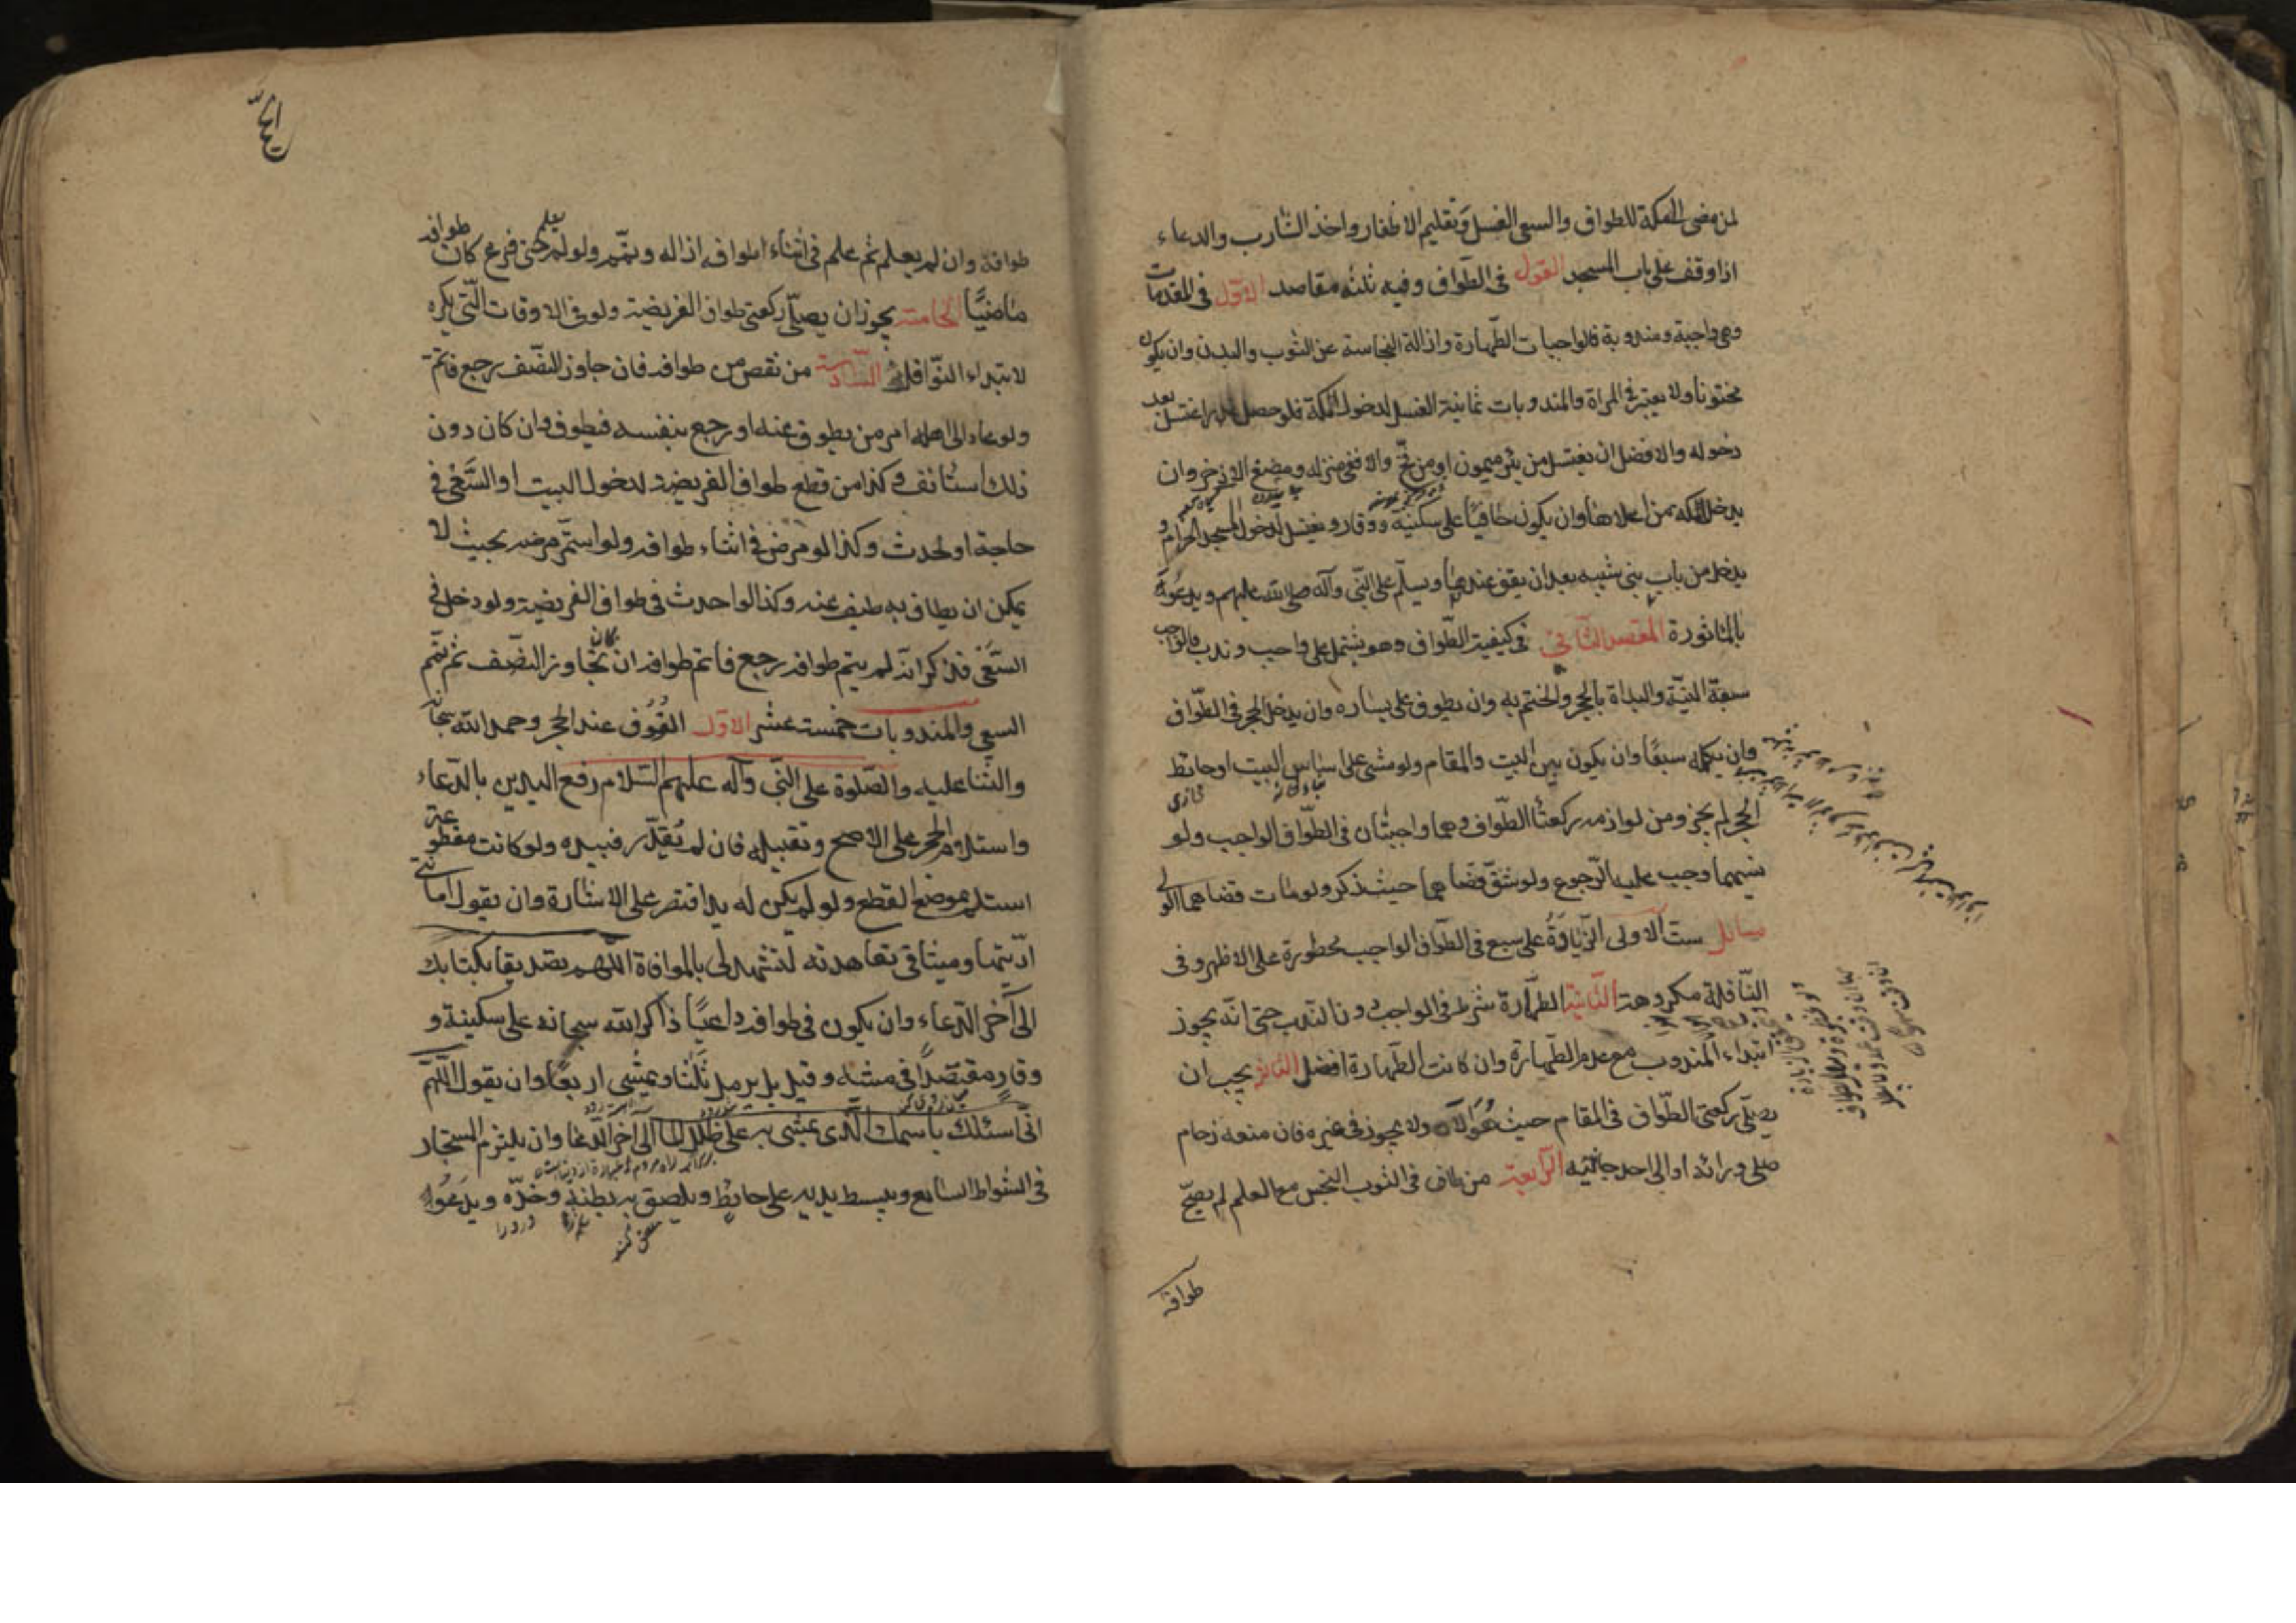 لمن مضى الى مكة للطواف والسعى الغسل وتقليم الاظفار واخذ الشارب والدعاء
اذا وقف على باب المسجد القول فى الطواف وفيه ثلثه مقاصد الاوّل فى المقدمات
وهى واجبة ومندوبة فالواجبات الطّهارة وازالة النجاسة عن الثوب والبدن وان يكون
مختونا ولا يعتبر فى المراة والمندوبات ثمانية الغسل لدخول مكة فلو حصل عذر اغتسل بعد
دخوله والافضل ان يغتسل من بئر ميمون او من فخّ والا ففى منزله ومضغ الاذخر وان
يدخل مكه من اعلاها وان يكون حافيًا على سكينه ووقار ويغتسل لدخول المسجد الحرام و
يدخل من باب بنى شيبه بعد ان يقف عندها ويسلّم على النّبى وآله صلى الله عليهم ويدعو
بالماثورة المقصد الثّانى فى كيفية الطّواف وهو يشتمل على واجب وندب فالواجب
سبعة النيّة والبداة بالحجر والختم به وان يطوف على يساره وان يدخل الحجر فى الطّواف
وان يكمله سبعًا وان يكون بين البيت والمقام ولو مشى على اساس البيت او حائط
الحجر لم يجز ومن لوازمه ركعتا الطّواف وهما واجبتان فى الطّواف الواجب ولو
نسيهما وجب عليه الرّجوع ولو شقّ قضاهما حيث ذكر ولو مات قضاهما الولى
مسائل ستّ الاولى الزّيادة على سبع فى الطّواف الواجب محظورة على الاظهر وفى
النّافلة مكروهة الثّانية الطّهارة شرط فى الواجب دون النّدب حتى انّه يجوز
ابتداء المندوب مع عدم الطّهارة وان كانت الطّهارة افضل الثالثة يجب ان
يصلّى ركعتى الطّواف فى المقام حيث هو الآن ولا يجوز فى غيره فان منعه زحام
صلى وراءه او الى احد جانبيه الرّابعة من طاف فى الثوب النّجس مع العلم لم يصحّ
طوافه
طوافه وان لم يعلم ثم علم فى اثناء الطواف ازاله ويتمّم ولو لم يعلم حتى فرغ كان طوافه
ماضيًا الخامسة يجوز ان يصلّى ركعتى طواف الفريضة ولو فى الاوقات الّتى يكره
لابتداء النّوافل السّادسة من نقص من طوافه فان جاوز النّصف رجع فاتمّ
ولو عاد الى اهله امر من يطوف عنه او رجع بنفسه فيطوف وان كان دون
ذلك استانف وكذا من قطع طواف الفريضة لدخول البيت او السّعى فى
حاجة او لحدث وكذا لو مرض فى اثناء طوافه ولو استمّر مرضه بحيث لا
يمكن ان يطاف به طيف عنه وكذا لو احدث فى طواف الفريضة ولو دخل فى
السّعى فذكر انّه لم يتم طوافه رجع فاتم طوافه ان كان تجاوز النّصف ثم تمّم
السعى والمندوبات خمسة عشر الاوّل الوقوف عند الحجر وحمد الله سبحانه
والثناء عليه والصّلوة على النّبى وآله عليهم السّلام رفع اليدين بالدّعاء
واستلام الحجر على الاصح وتقبيله فان لم يقدر فبيده ولو كانت مقطوعة
استلم بموضع القطع ولو لم يكن له يد اقتصر على الاشارة وان يقول امانتى
ادّيتها وميثاقى تعاهدته لتشهد لى بالموافاة اللّهم تصديقا بكتابك
الى آخر الدّعاء وان يكون فى طوافه داعيًا ذاكرا لله سبحانه على سكينة و
وقار مقتصدًا فى مشيه وقيل يرمل ثلثا ويمشى اربعًا وان يقول اللّهم
انّى اسئلك باسمك الّذى يمشى به على ظلل الماء الى آخر الدّعاء وان يلتزم المستجار
فى الشواط السّابع ويبسط يديه على حائط ويلصق به بطنه وخدّه ويدعو